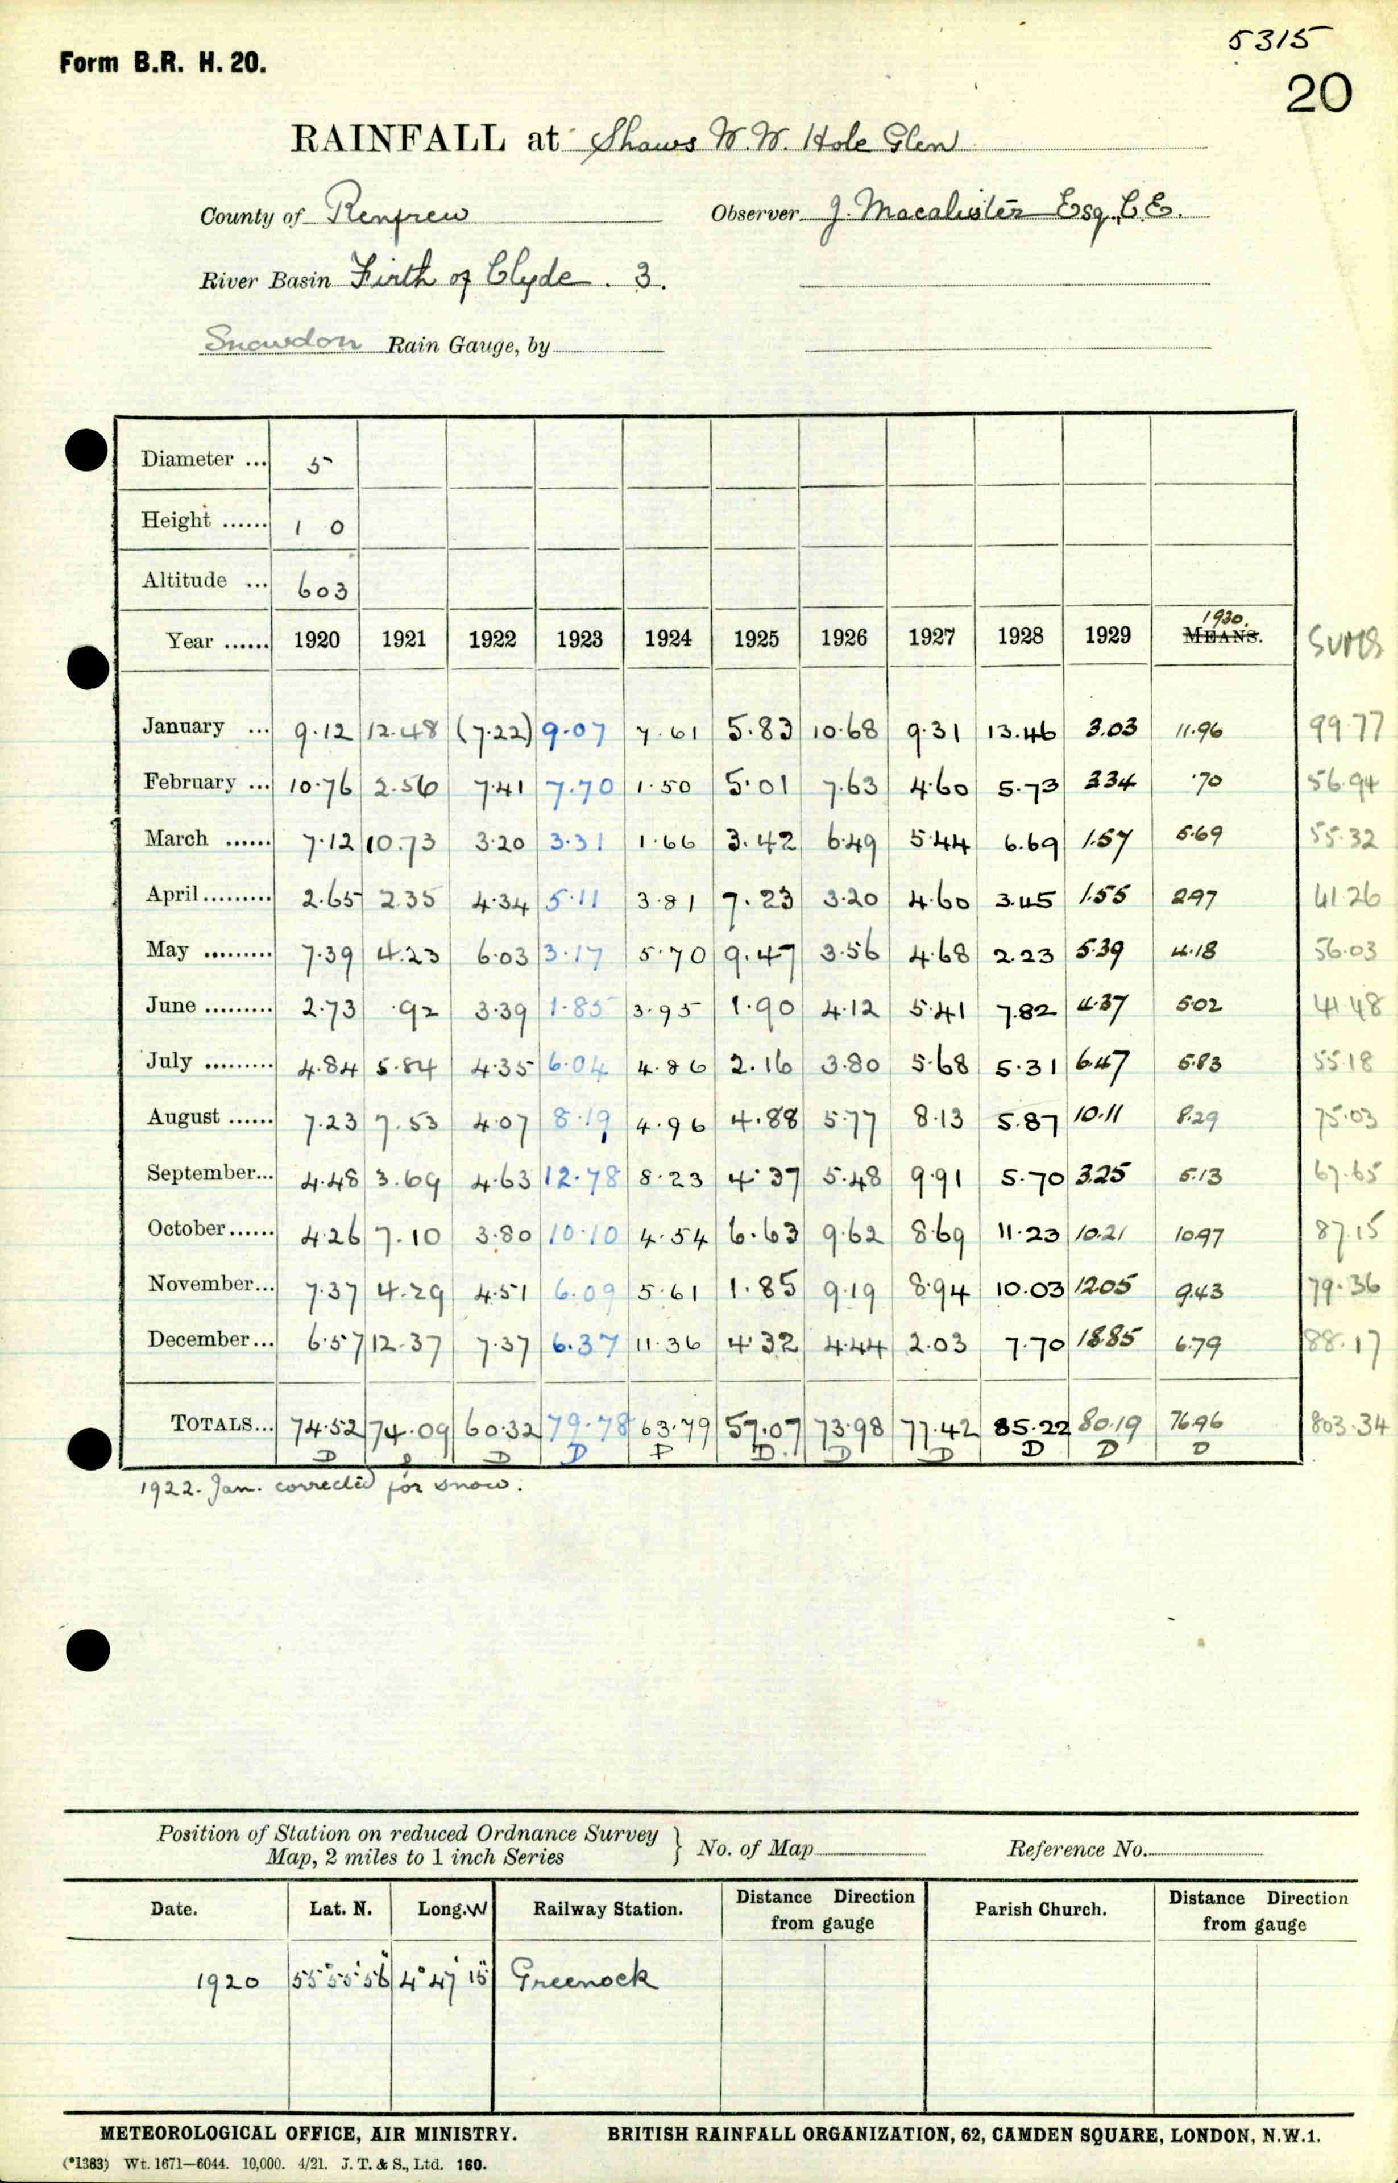 5315
Form B.R. H. 20.
20
RAINFALL at Shaws W.W. Hole Glen
County of Renfrew Observer J. Macalister Esq, C.E.
River Basin Firth of Clyde. 3.
Snowdon Rain Gauge, by
Diameter ... 5
Height ...... 1 0
Altitude ... 603
1930.
Year ...... 1920 1921 1922 1923 1924 1925 1926 1927 1928 1929 MEANS. SUMS
January ... 9.12 12.48 (7.22) 9.07 7.61 5.83 10.68 9.31 13.46 3.03 11.96 99.77
February ... 10.76 2.56 7.41 7.70 1.50 5.01 7.63 4.60 5.73 2.34 .70 56.94
March ...... 7.12 10.73 3.20 3.31 1.66 3.42 6.49 5.44 6.69 1.57 5.69 55.32
April ......... 2.65 2.35 4.34 5.11 3.81 7.23 3.20 4.60 3.45 1.55 2.97 41.26
May ......... 7.39 4.23 6.03 3.17 5.70 9.47 3.56 4.68 2.23 5.39 4.18 56.03
June ......... 2.73 .92 3.39 1.85 3.95 1.90 4.12 5.41 7.82 4.37 5.02 41.48
July ......... 4.84 5.84 4.35 6.04 4.86 2.16 3.80 5.68 5.31 6.47 5.83 55.18
August ...... 7.23 7.53 4.07 8.19 4.96 4.88 5.77 8.13 5.87 10.11 8.29 75.03
September... 4.48 3.69 4.63 12.78 8.23 4.37 5.48 9.91 5.70 3.25 5.13 67.65
October ...... 4.26 7.10 3.80 10.10 4.54 6.63 9.62 8.69 11.23 10.21 10.97 87.15
November... 7.37 4.29 4.51 6.09 5.61 1.85 9.19 8.94 10.03 12.05 9.43 79.36
December... 6.57 12.37 7.37 6.37 11.36 4.32 4.44 2.03 7.70 18.85 6.79 88.17
TOTALS... 74.52 74.09 60.32 79.78 63.79 57.07 73.98 77.42 85.22 80.19 76.96 803.34
D D D D D D D D D
1922. Jan. corrected for snow.
Position of Station on reduced Ordnance Survey
Map, 2 miles to 1 inch Series } No. of Map Reference No.
Date. Lat. N. Long. W Railway Station. Distance Direction from gauge Parish Church. Distance Direction from gauge
1920 55° 55' 56" 4° 47' 15" Greenock
METEOROLOGICAL OFFICE, AIR MINISTRY. BRITISH RAINFALL ORGANIZATION, 62, CAMDEN SQUARE, LONDON, N.W.1.
(*1383) Wt. 1671—6044. 10,000. 4/21. J. T. & S., Ltd. 160.